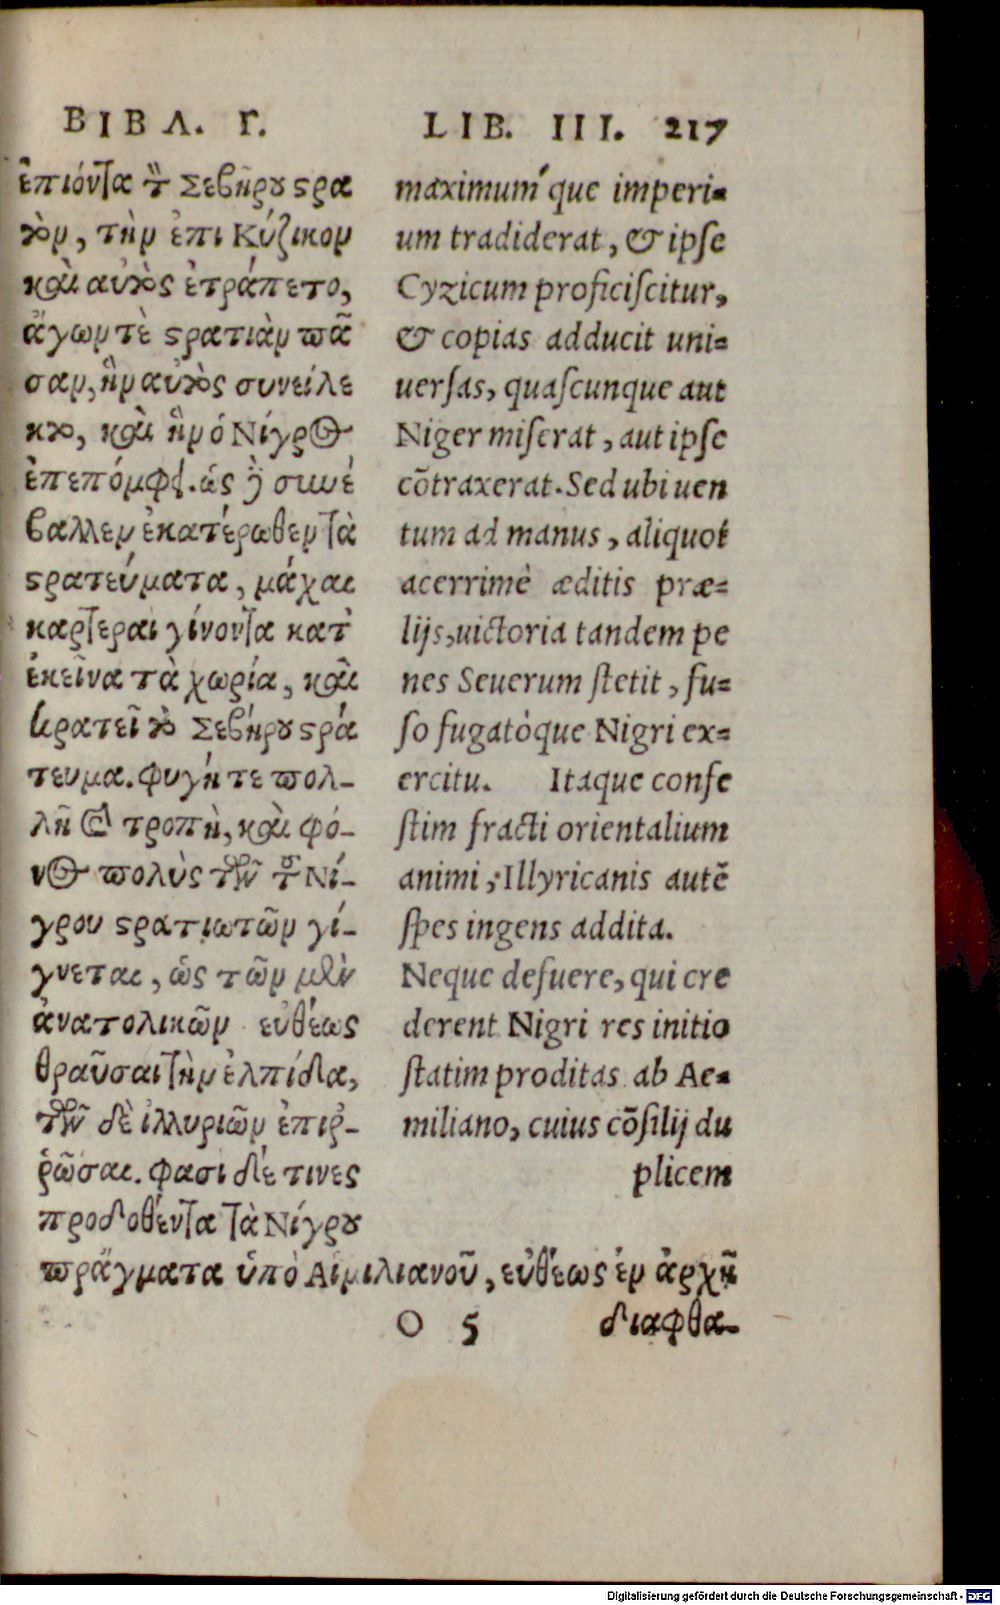 ΒΙΒΛ. Γ.
ἐπιόντα τ̀ Σεβῆρου στρα
τὸν, τὴν ἐπι Κύζικον
καὶ αὐτὸς ἐτράπετο,
ἄγων τὲ στρατιὰν πᾶ
σαν, ἣν αὐτὸς συνείλε
κτο, καὶ ἣν ὁ Νίγρος
ἐπεπόμφει. ὡς ἢ συνέ
βαλλεν ἑκατέρωθεν τὰ
στρατεύματα, μάχαι
καρτεραὶ γίνονται κατ'
ἐκεῖνα τὰ χωρία, καὶ
κρατεῖ τὸ Σεβήρου στρά
τευμα. φυγή τε πολ-
λὴ καὶ τροπὴ, καὶ φό-
νος πολὺς τῶν τοῦ Νί-
γρου στρατιωτῶν γί-
γνεται, ὡς τῶν μὲν
ἀνατολικῶν εὐθέως
θραῦσαι τὴν ἐλπίδα,
τῶν δὲ ἰλλυριῶν ἐπιῤ-
ῥῶσαι. φασι δέ τινες
προδοθέντα τὰ Νίγρου
πράγματα ὑπὸ Αἰμιλιανοῦ, εὐθέως ἐν ἀρχῇ
LIB. III. 217
maximum´que imperi-
um tradiderat, & ipse
Cyzicum proficiscitur,
& copias adducit uni-
uersas, quascunque aut
Niger miserat, aut ipse
cōtraxerat. Sed ubi uen
tum ad manus, aliquot
acerrimè æditis præ-
lijs, uictoria tandem pe
nes Seuerum stetit, fu-
so fugatòque Nigri ex-
ercitu. Itaque confe
stim fracti orientalium
animi, Illyricanis autē
spes ingens addita.
Neque defuere, qui cre
derent Nigri res initio
statim proditas ab Ae-
miliano, cuius cōsilij du
plicem
O 5 διαφθα-
Digitalisierung gefördert durch die Deutsche Forschungsgemeinschaft - DFG